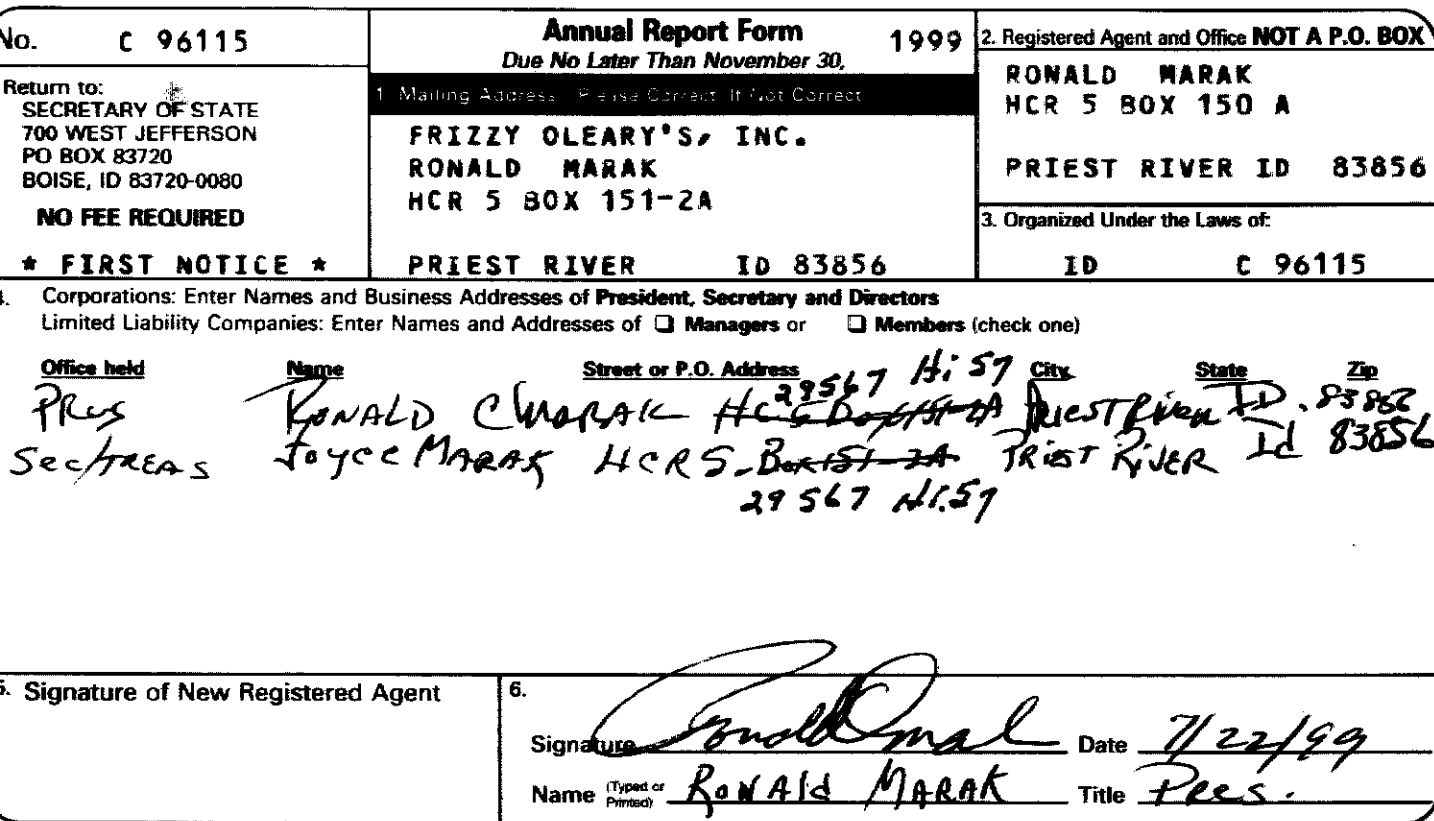 No. C 96115
Return to:
SECRETARY OF STATE
700 WEST JEFFERSON
PO BOX 83720
BOISE, ID 83720-0080
NO FEE REQUIRED
* FIRST NOTICE *
Annual Report Form 1999
Due No Later Than November 30,
1 Mailing Address Please Correct If Not Correct
FRIZZY OLEARY'S, INC.
RONALD MARAK
HCR 5 BOX 151-2A
PRIEST RIVER ID 83856
2. Registered Agent and Office NOT A P.O. BOX
RONALD MARAK
HCR 5 BOX 150 A
PRIEST RIVER ID 83856
3. Organized Under the Laws of:
ID C 96115
4. Corporations: Enter Names and Business Addresses of President, Secretary and Directors
Limited Liability Companies: Enter Names and Addresses of ❑ Managers or ❑ Members (check one)
Office held Name Street or P.O. Address City State Zip
29567 Hi 57
PRes RONALD C MARAK Priest River ID. 83856
Sec/TREAS Joyce MARAK HCR 5 Box 151-2A PRiEST RiVER Id 83856
29567 Hi.57
5. Signature of New Registered Agent
6.
Signature Date 7/22/99
Name (Typed or Printed) RONAld MARAK Title Pres.